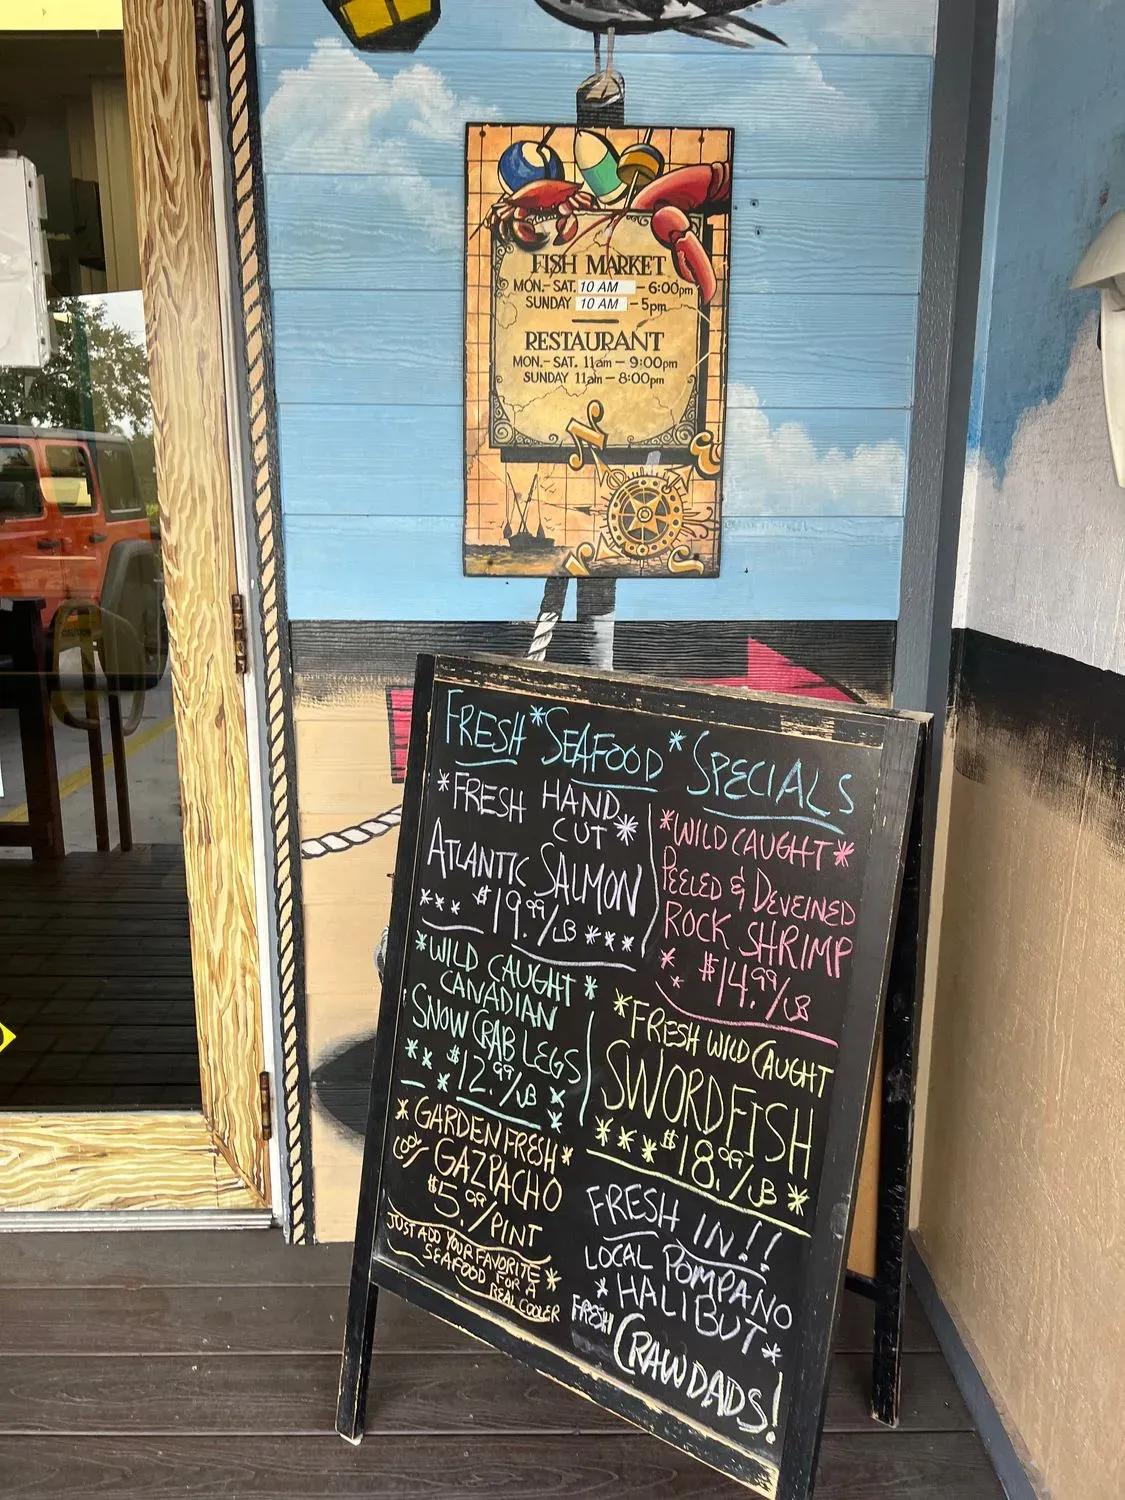 FISH MARKET
MON.- SAT. 10 AM - 6:00pm
SUNDAY 10 AM - 5pm
RESTAURANT
MON.- SAT. 11am - 9:00pm
SUNDAY 11am - 8:00pm
N
E
S
CAUTION
FRESH * SEAFOOD * SPECIALS
* FRESH HAND
CUT *
ATLANTIC SALMON
* * * $19.99/LB * * *
* WILD CAUGHT *
PEELED & DEVEINED
ROCK SHRIMP
* * $14.99/LB
* WILD CAUGHT *
CANADIAN
SNOW CRAB LEGS
* * * $12.99/LB * *
* FRESH WILD CAUGHT
SWORDFISH
* * * $18.99/LB *
* GARDEN FRESH *
COOL GAZPACHO
$5.99/PINT
JUST ADD YOUR FAVORITE *
SEAFOOD FOR A
REAL COOLER
FRESH IN!!
LOCAL POMPANO
* HALIBUT *
FRESH CRAWDADS!